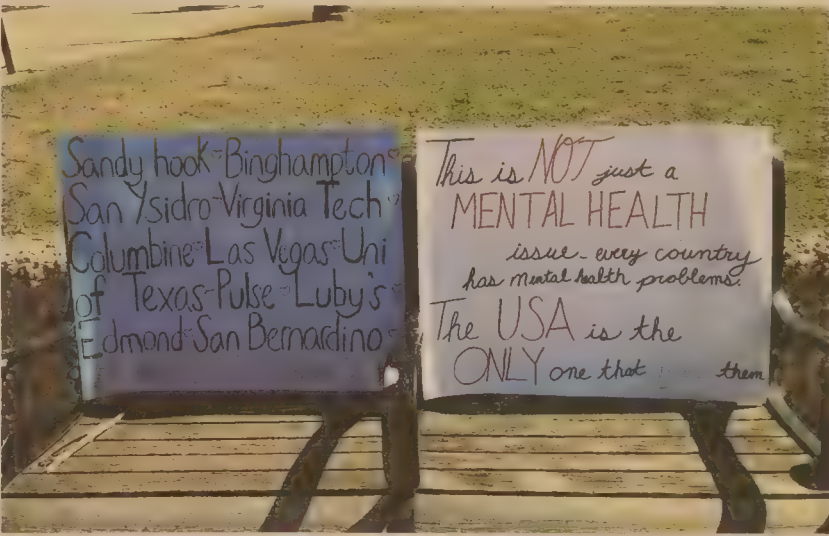 Sandy hook Binghampton
San Ysidro Virginia Tech
Columbine Las Vegas Uni
of Texas Pulse Luby's
Edmond San Bernardino
This is NOT just a
MENTAL HEALTH
issue - every country
has mental health problems.
The USA is the
ONLY one that them